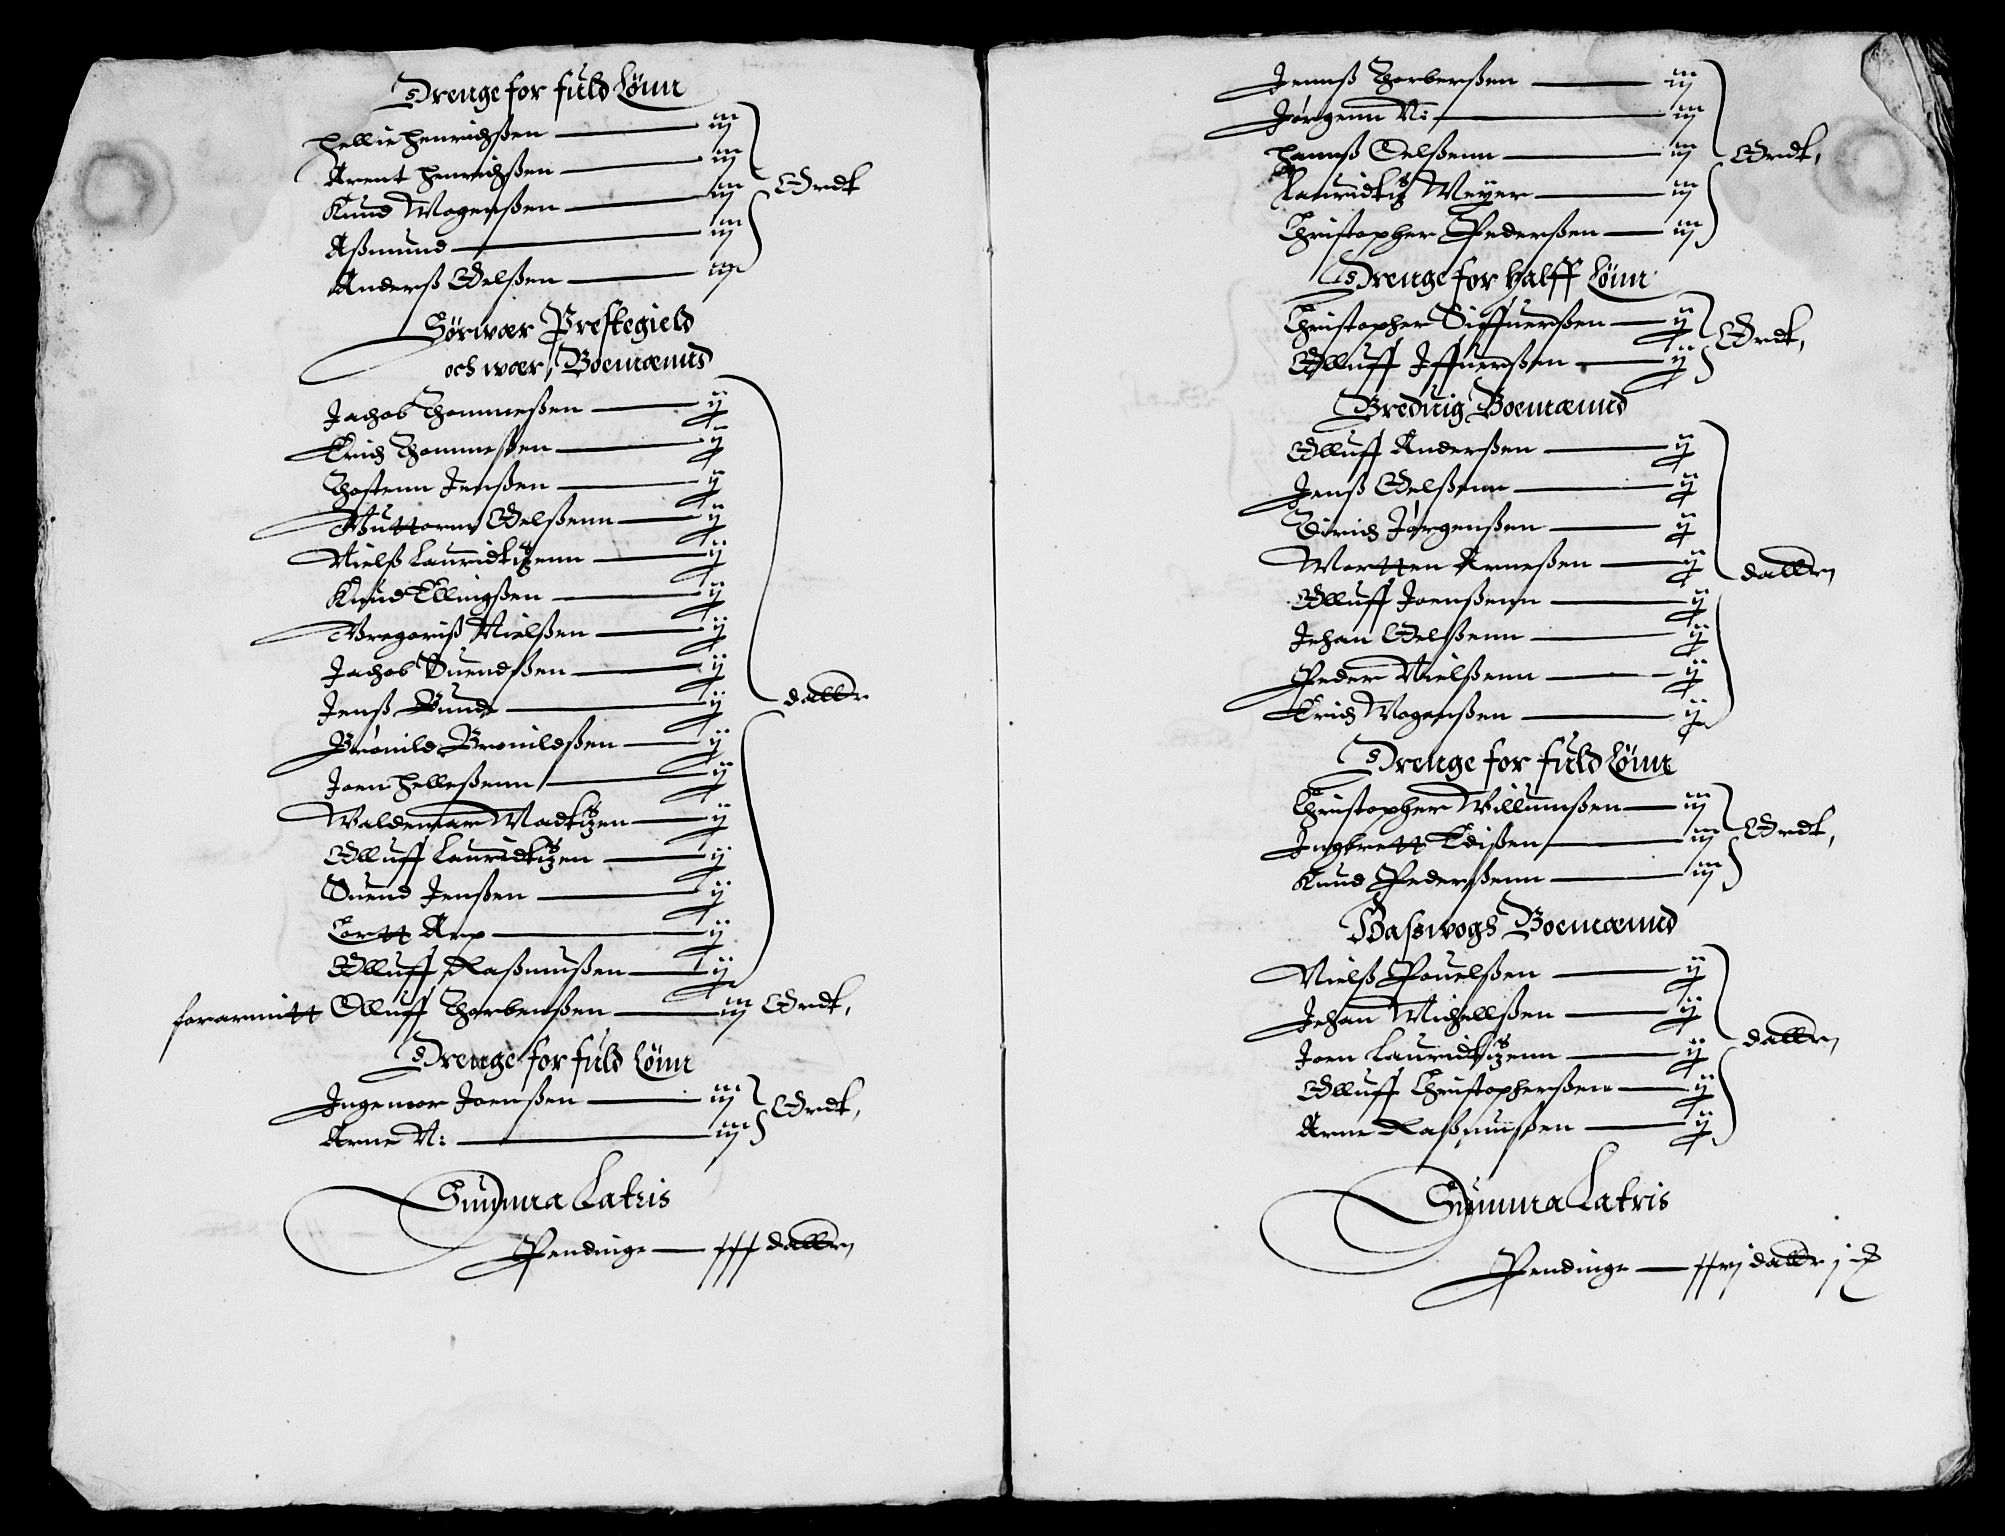 Drenge for fuld Lönn
Hellie Henrichßen — iij
Arent Henrichßen — iij
Knud Mogenßen — iij
Aßmund — iij
Anderß Oelßen — iij
Ordt
Sörwær Prestegield
och wær, Boemænnd
Jachob Thommeßen — ij
Erich Thommeßen — ij
Thostenn Jenßen — ij
Guttorm Oelßenn — ij
Nielß Lauridtzenn — ij
Knud Ellingßen — ij
Gregoriß Nielßen — ij
Jachob Suendßen — ij
Jenß Bunde — ij
Brönild Bronildßen — ij
Joen Helleßenn — ij
Waldemar Madtzen — ij
Olluff Lauridtzen — ij
Suend Jenßen — ij
Cortt Arp — ij
Olluff Raßmußen — ij
dallr
forarmitt Olluff Thorbenßen — iij Ordt,
Drenge for fuld Lönn
Ingemor Joenßen — iij
Arne N: — iij
Ordt,
Summa Latris
Pendinge — xxx dallr
Jennß Thorberßen — iij
Jørgenn N: — iij
Hannß Oelßenn — iij
Lauridtz Meyer — iij
Christopher Pederßen — iij
Ordt,
Drenge for halff Lönn
Christopher Siffuerdßen — ij
Olluff Iffuerdßen — ij
Ordt,
Breduig Boemænnd
Olluff Anderßen — ij
Jenß Oelßenn — ij
Dirich Jørgenßen — ij
Mortten Arneßen — ij
Olluff Joenßenn — ij
Johan Oelßenn — ij
Peder Nielßenn — ij
Erich Mogenßen — ij
dallr
Drenge for fuld Lönn
Christopher Willumßen — iij
Ingbrett Edißen — iij
Knud Pederßenn — iij
Ordt,
Basswogs Boemænnd
Nielß Pouelßen — ij
Johan Michellßen — ij
Joen Lauridtzenn — ij
Olluff Christopherßen — ij
Arne Raßmußen — ij
dallr
Summa Latris
Pendinge — xxvj dallr j